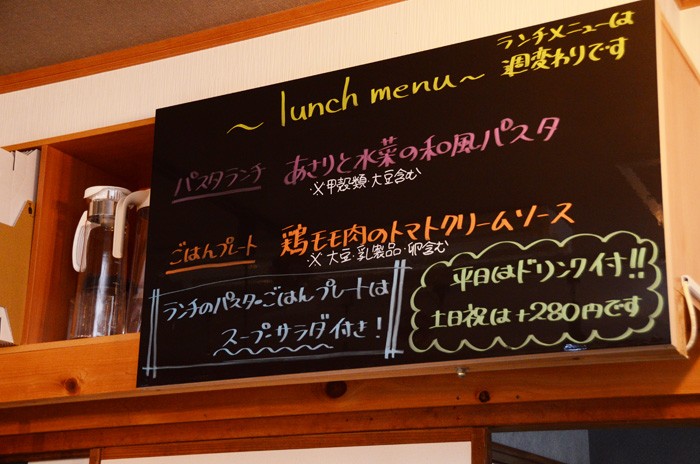 ～ lunch menu ～
ランチメニューは
週変わりです
パスタランチ あさりと水菜の和風パスタ
※甲殻類・大豆含む
ごはんプレート 鶏モモ肉のトマトクリームソース
※大豆・乳製品・卵含む
ランチのパスタ・ごはんプレートは
スープ・サラダ付き！
平日はドリンク付!!
土日祝は+280円です